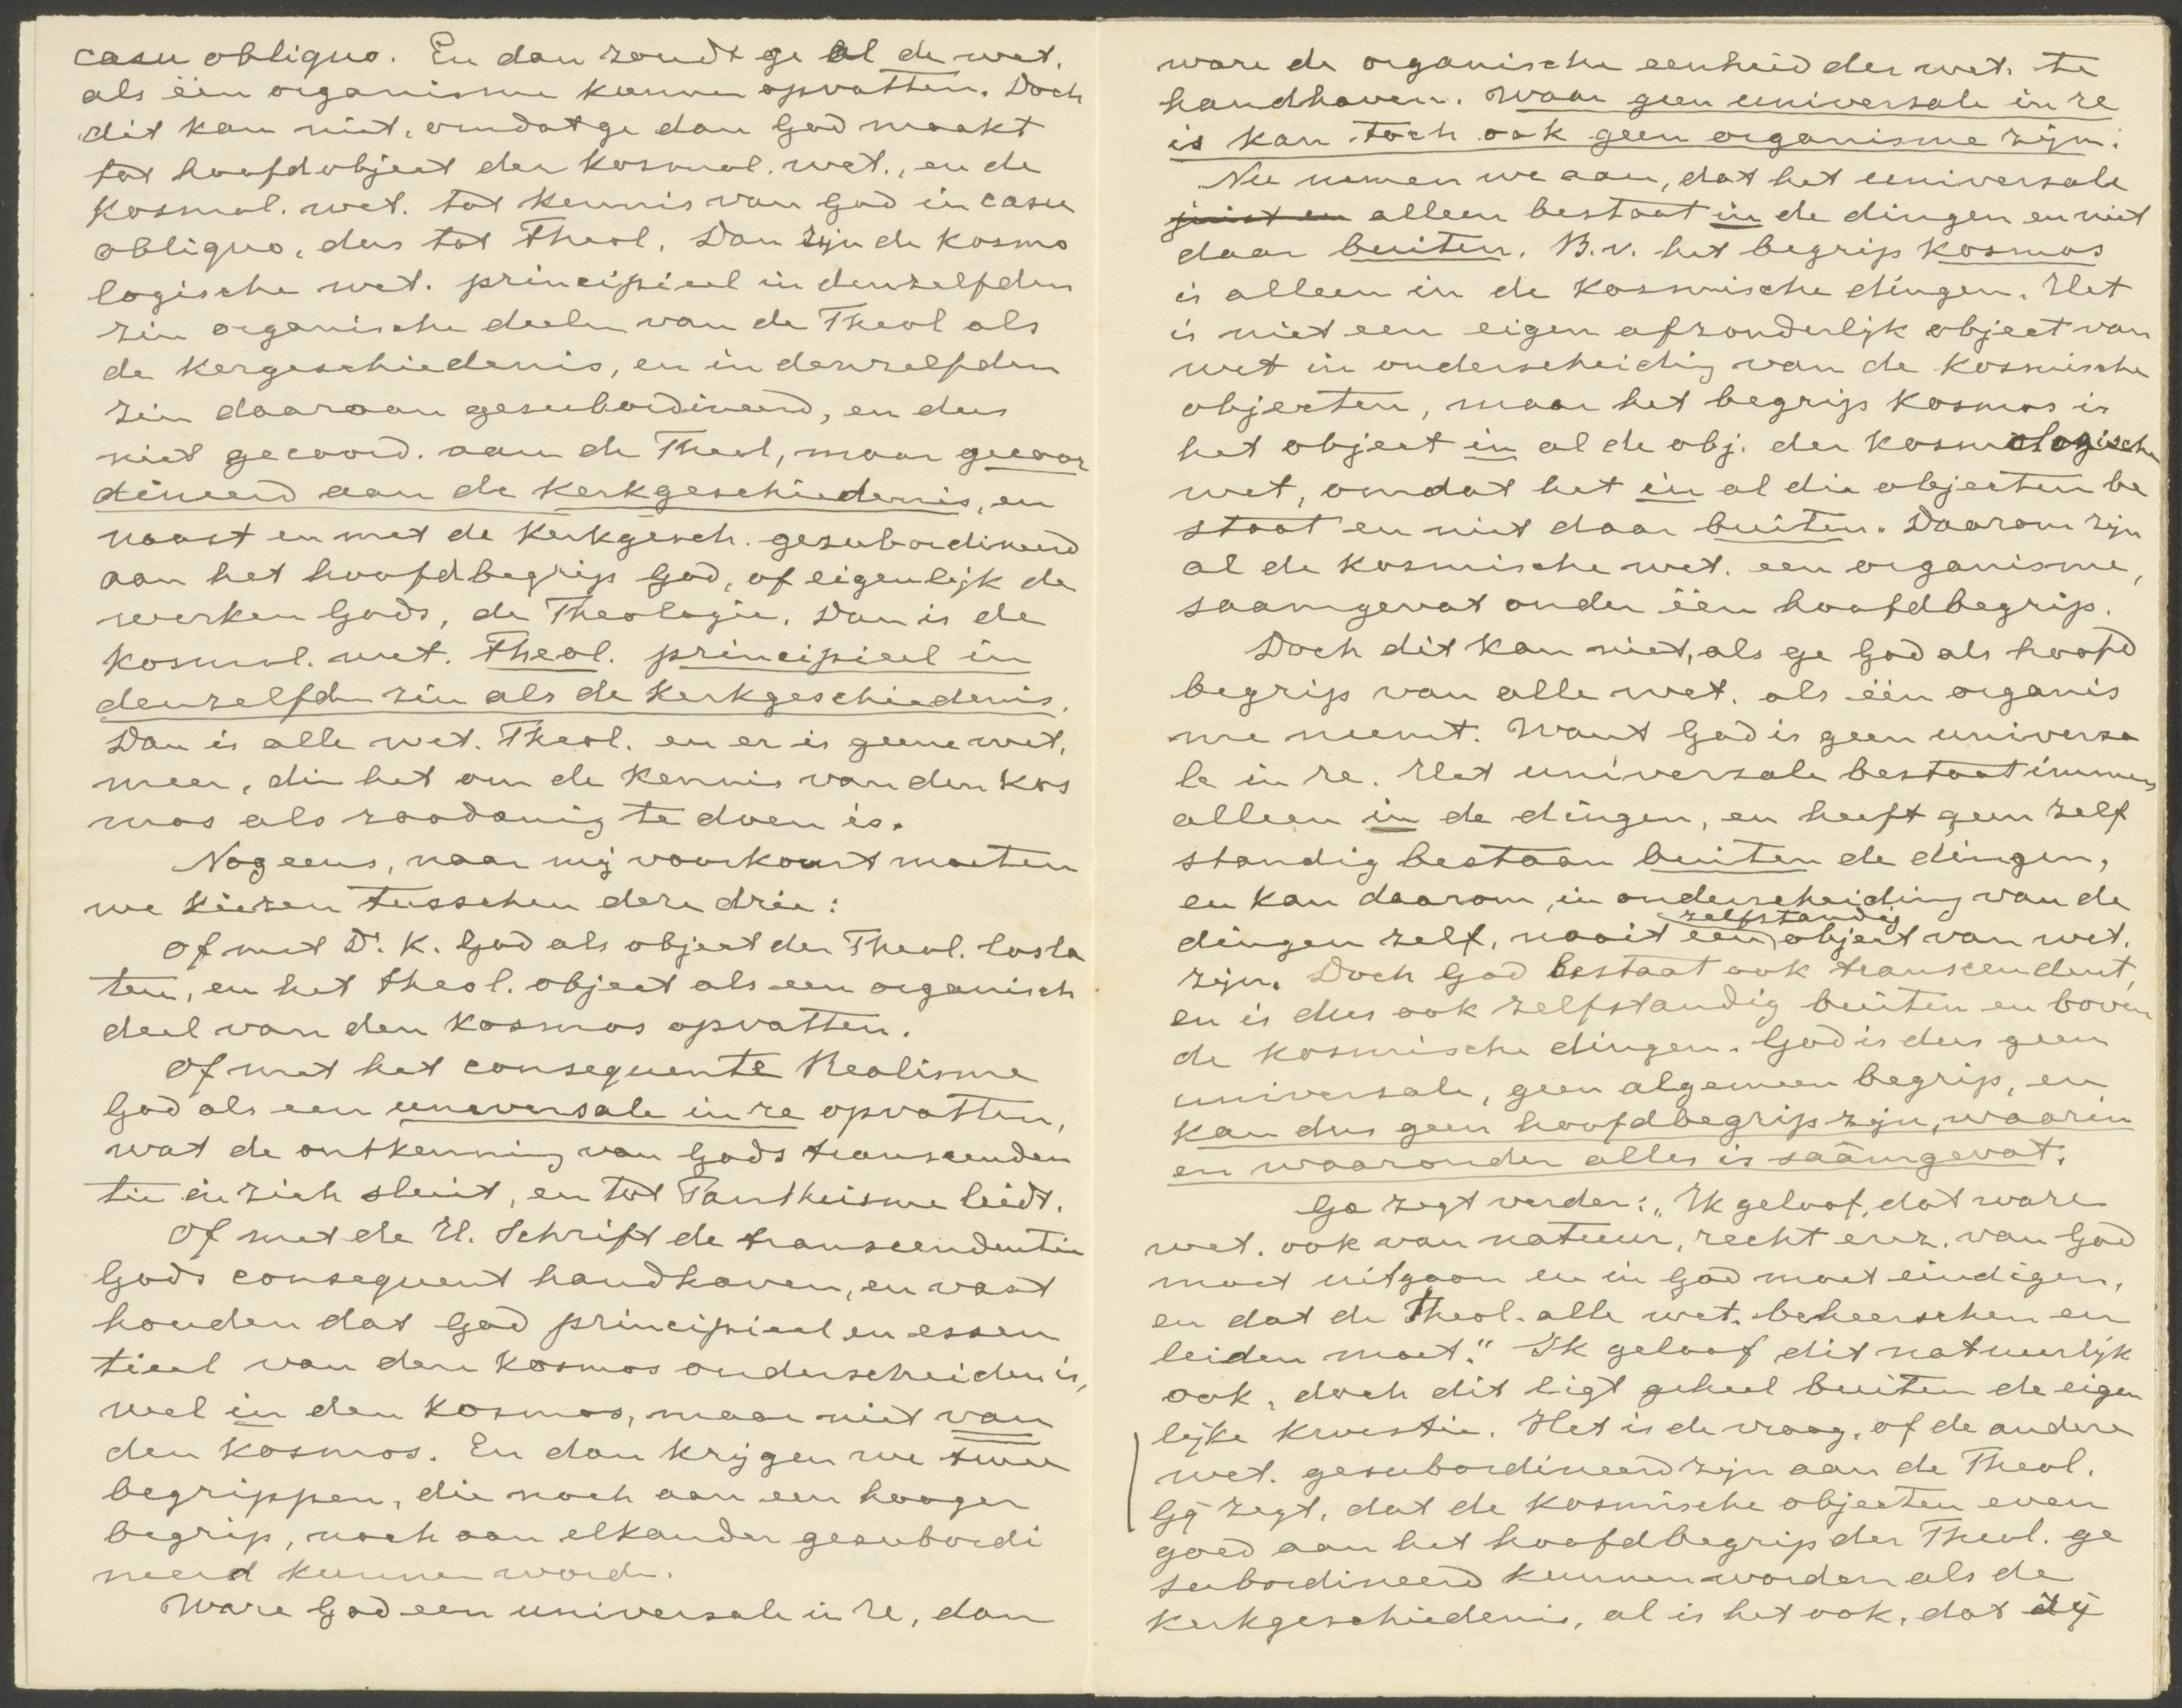 casu obliquo. En dan zoudt ge al de wet.
als één organisme kunnen opvatten. Doch
dit kan niet, omdat ge dan God maakt
tot hoofdobject der kosmol. wet., en de
kosmol. wet. tot kennis van God in casu
obliquo, dus tot Theol. Dan zijn de kosmo
logische wet. principieel in denzelfden
zin organische deelen van de Theol als
de kergeschiedenis, en in denzelfden
zin daaraan gesubordineerd, en dus
niet gecoord. aan de Theol, maar gecoor
dineerd aan de kerkgeschiedenis, en
naast en met de kerkgesch. gesubordineerd
aan het hoofdbegrip God, of eigenlijk de
werken Gods, de Theologie. Dan is de
kosmol. wet. Theol. principieel in
denzelfden zin als de kerkgeschiedenis.
Dan is alle wet. Theol. en er is geene wet.
meer, die het om de kennis van den kos
mos als zoodanig te doen is.
Nog eens, naar mij voorkomt moeten
we kiezen tusschen deze drie:
Of met Dr. K. God als object der Theol. losla
ten, en het theol. object als een organisch
deel van den kosmos opvatten.
Of met het consequente Realisme
God als een universale in re opvatten,
wat de ontkenning van Gods transcenden
tie in zich sluit, en tot Pantheisme leidt.
Of met de H. Schrift de transcendentie
Gods consequent handhaven, en vast
houden dat God principieel en essen
tieel van den kosmos onderscheiden is,
wel in den kosmos, maar niet van
den kosmos. En dan krijgen we twee
begrippen, die noch aan een hooger
begrip, noch aan elkander gesubordi
neerd kunnen worden.
Ware God een universale in re, dan
ware de organische eenheid der wet. te
handhaven. Waar geen universale in re
is kan toch ook geen organisme zijn.
Nu nemen we aan, dat het universale
juist en alleen bestaat in de dingen en niet
daar buiten. B.v. het begrip kosmos
is alleen in de kosmische dingen. Het
is niet een eigen afzonderlijk object van
wet in onderscheiding van de kosmische
objecten, maar het begrip kosmos is
het object in al de obj. der kosmologische
wet, omdat het in al die objecten be
staat en niet daar buiten. Daarom zijn
al de kosmische wet. een organisme,
saamgevat onder één hoofdbegrip.
Doch dit kan niet, als ge God als hoofd
begrip van alle wet. als één organis
me neemt. Want God is geen universa
le in re. Het universale bestaat immers
alleen in de dingen, en heeft geen zelf
standig bestaan buiten de dingen,
en kan daarom, in onderscheiding van de
dingen zelf, nooit een zelfstandig object van wet.
zijn. Doch God bestaat ook transcendent,
en is dus ook zelfstandig buiten en boven
de kosmische dingen. God is dus geen
universale, geen algemeen begrip, en
kan dus geen hoofdbegrip zijn, waarin
en waaronder alles is saâmgevat.
Ge zegt verder: "Ik geloof, dat ware
wet. ook van natuur, recht enz. van God
moet uitgaan en in God moet eindigen,
en dat de Theol. alle wet. beheerschen en
leiden moet." Ik geloof dit natuurlijk
ook, doch dit ligt geheel buiten de eigen
lijke kwestie. Het is de vraag, of de andere
wet. gesubordineerd zijn aan de Theol.
Gij zegt, dat de kosmische objecten even
goed aan het hoofdbegrip der Theol. ge
subordineerd kunnen worden als de
kerkgeschiedenis, al is het ook, dat zij